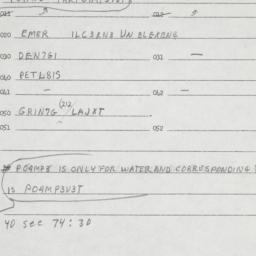 020 EMER ILC3RN3 UN BLERENG
030 DEN7GI 031 —
040 PETL8IS
041 - 042 -
050 GRIN7G (212) /LAJXT
051 052
* PO4MP3 IS ONLY FOR WATER AND CORRESPONDING
IS PO4MP3V3T
40 sec 74:30